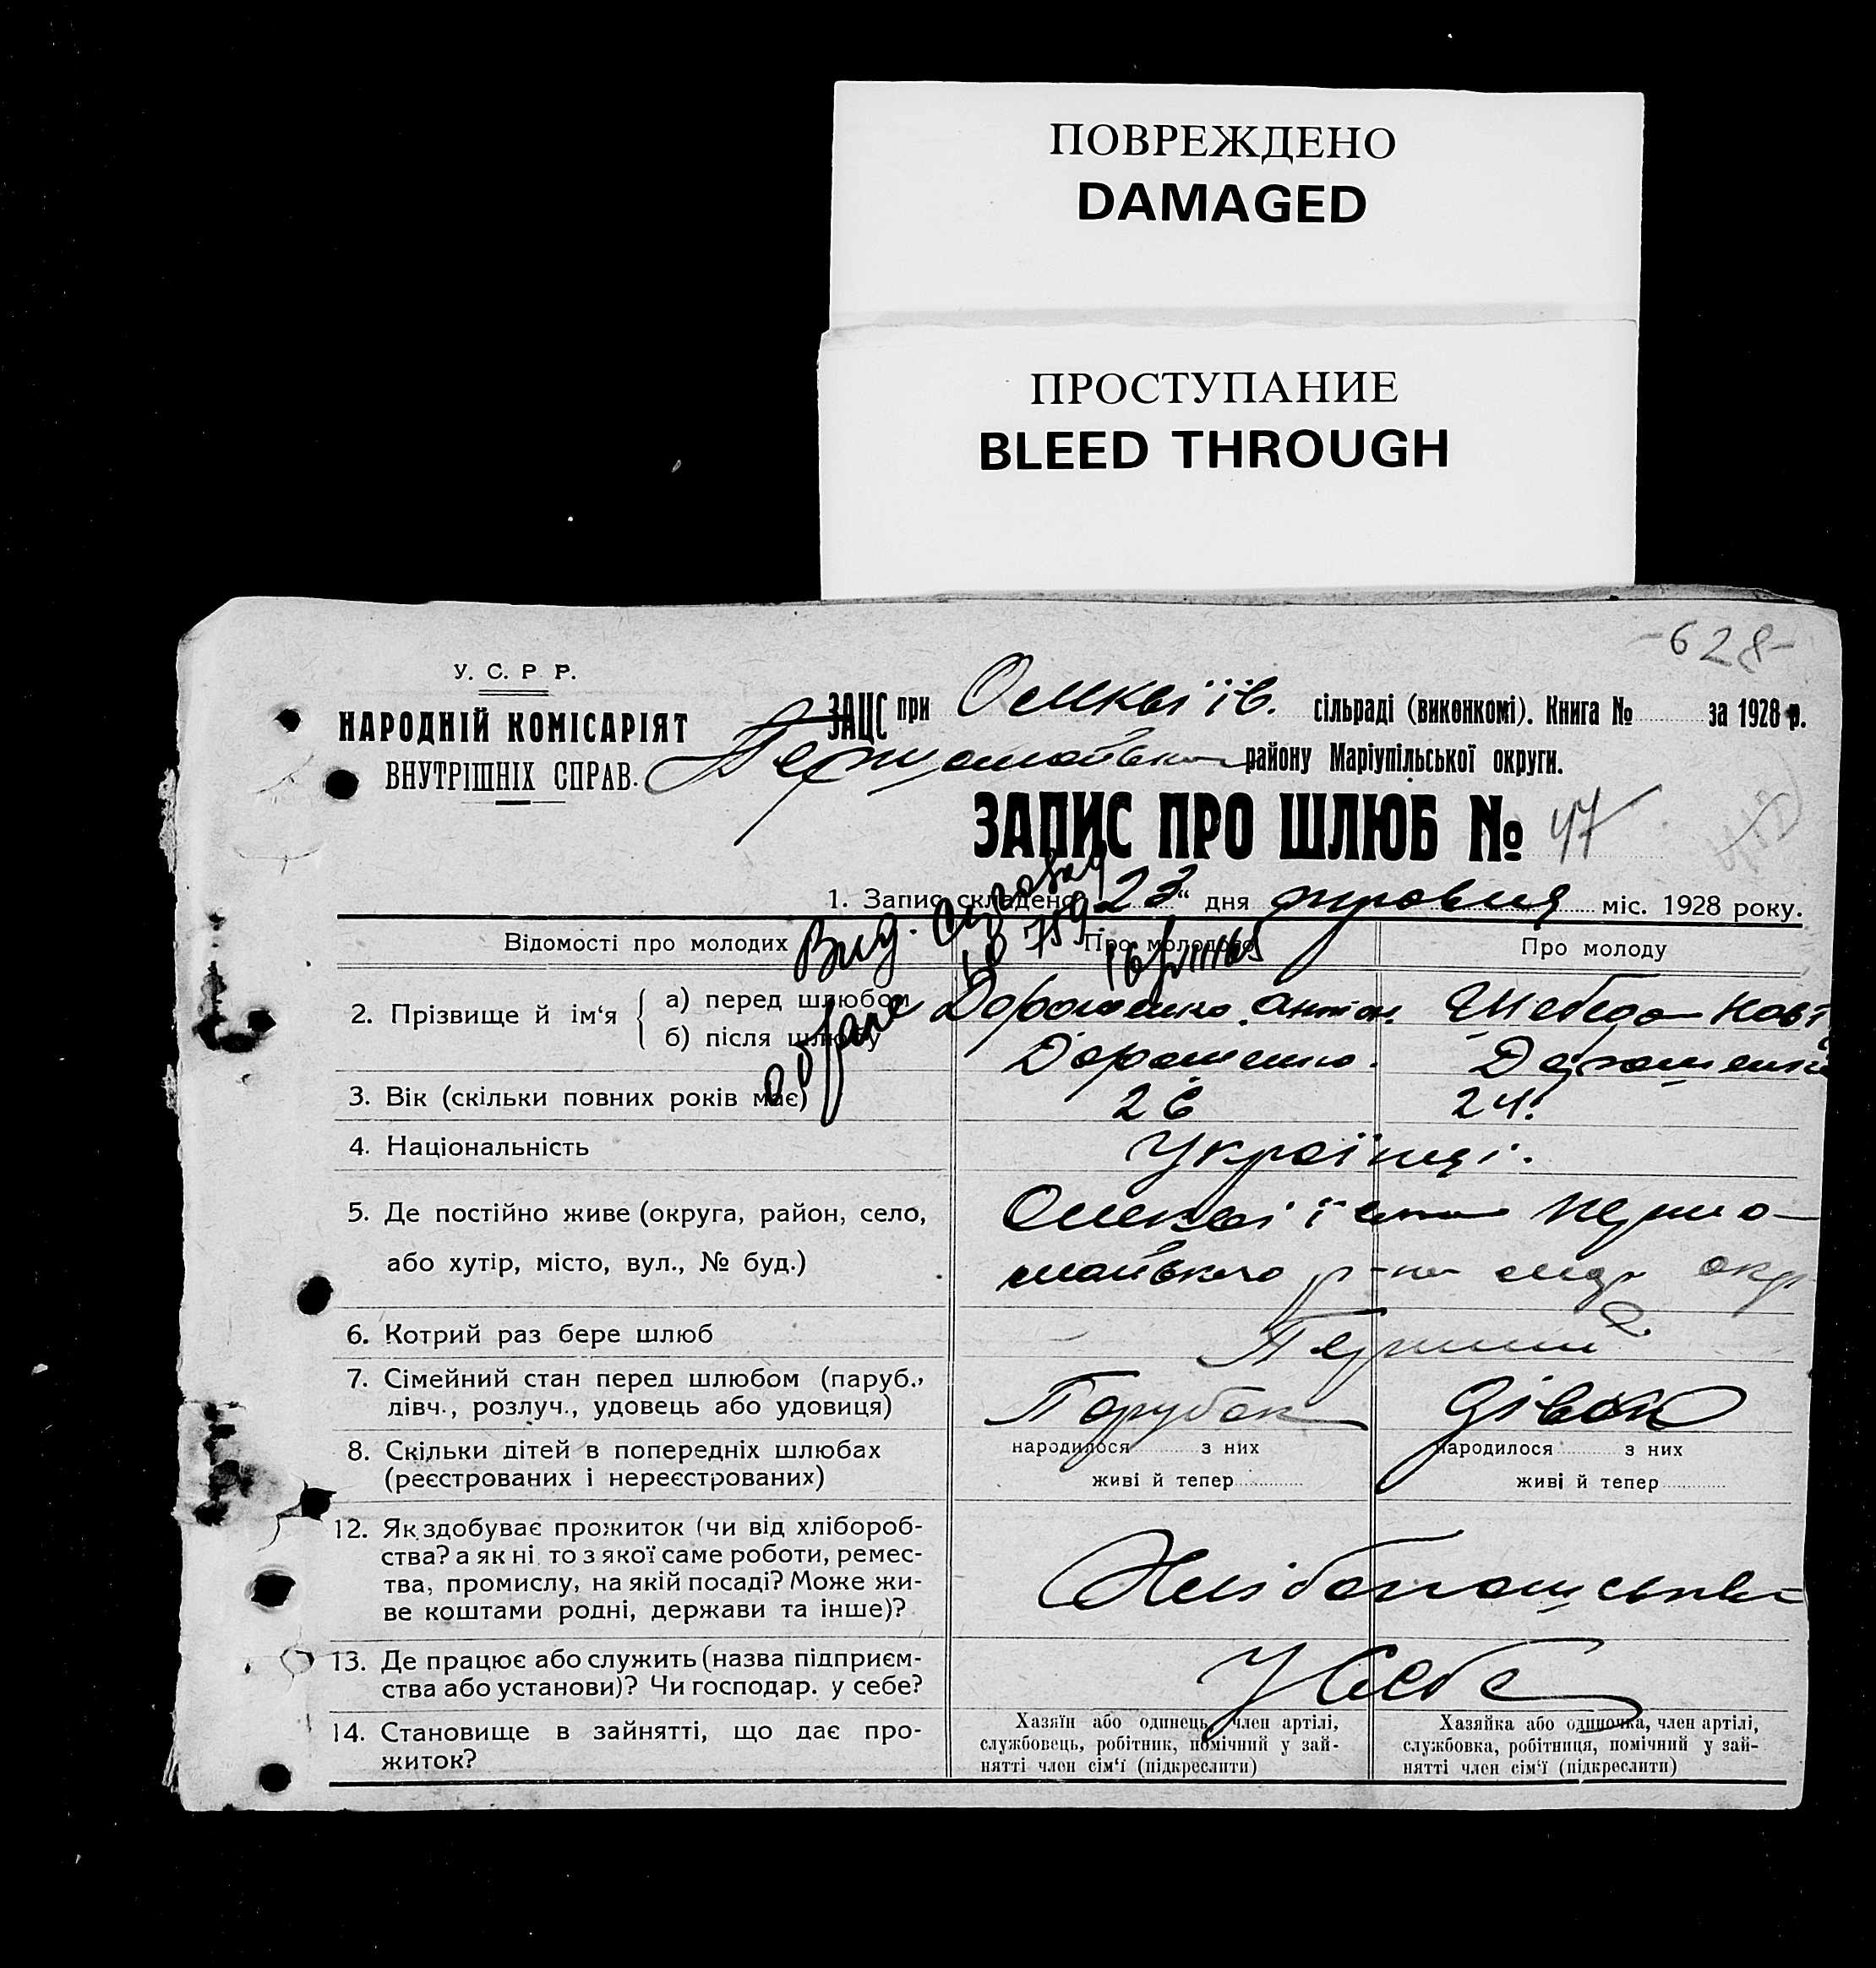 ПОВРЕЖДЕНО
DAMAGED
ПРОСТУПАНИЕ
BLEED THROUGH
-628-
У. С. Р Р.
НАРОДНІЙ КОМІСАРІЯТ
ВНУТРІШНІХ СПРАВ.
ЗАЦС при сільраді (виконкомі). Книга № за 1928 р.
району Маріупільської округи.
ЗАПИС ПРО ШЛЮБ № 47
1. Запис складено „23“ дня травня міс. 1928 року.
Відомості про молодих Про молодого Про молоду
2. Прізвище й ім‘я
а) перед шлюбом Дорошенко Антон.
б) після шлюбу Дорошенко. Дорошенко
3. Вік (скільки повних років має) 26 24.
4. Національність Українці.
5. Де постійно живе (округа, район, село,
або хутір, місто, вул., № буд.)
Першо-
майського р-на окр
6. Котрий раз бере шлюб Перший
7. Сімейний стан перед шлюбом (паруб.,
лівч., розлуч., удовець або удовиця)
Парубок
8. Скільки дітей в попередніх шлюбах
(реєстрованих і нереєстрованих)
народилося з них
живі й тепер
народилося з них
живі й тепер
12. Як здобуває прожиток (чи від хлібороб-
ства? а як ні то з якої саме роботи, ремес-
тва, промислу, на якій посаді? Може жи-
ве коштами родні, держави та інше)?
13. Де працює або служить (назва підприєм-
ства або установи)? Чи господар. у себе?
У себе
14. Становище в зайнятті, що дає про-
житок?
Хазяїн або одинець, член артілі,
службовець, робітник, помічний у зай-
нятті член сім‘ї (підкреслити)
Хазяйка або одиночка, член артілі,
службовка, робітниця, помічний у зай-
нятті член сім‘ї (підкреслити)